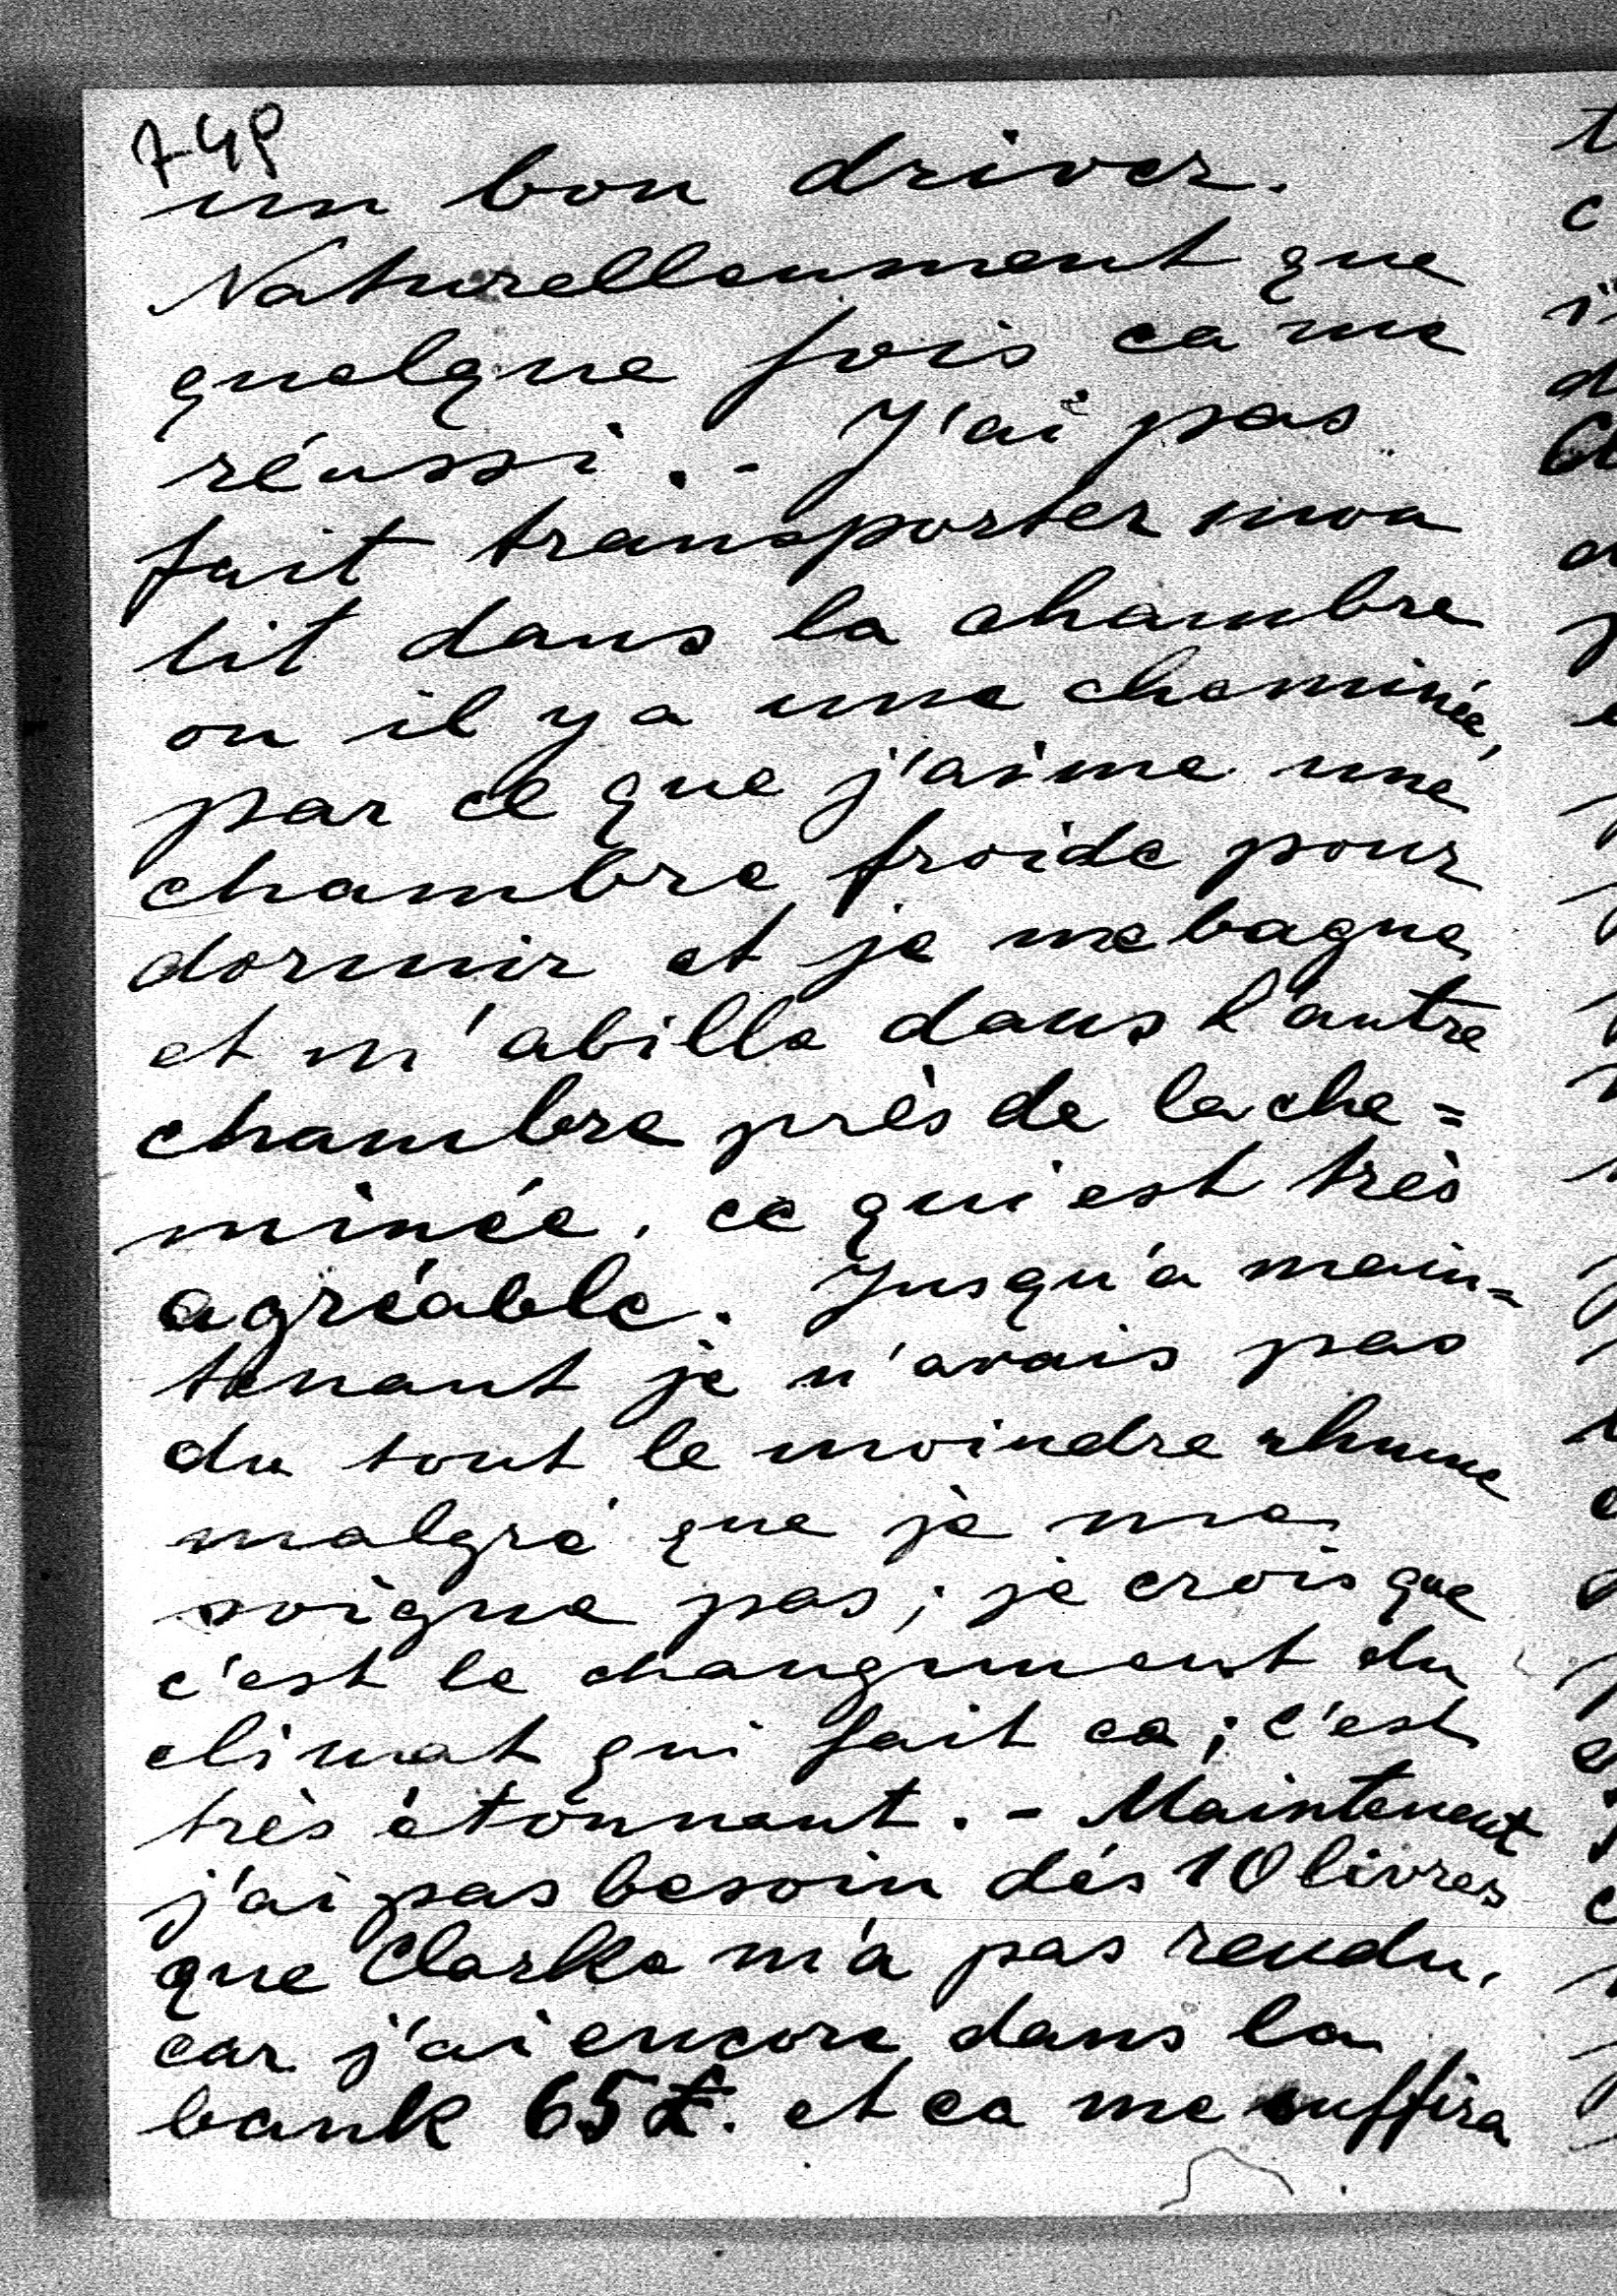 7-4p
un bon driver.
Naturelleument que
quelque fois ca me
réussi. - J'ai pas
fait transporter mon
lit dans la chambre
ou il y a une cheminée,
par ce que j'aime une
chambre froide pour
dormir et je me bagne
et m'abille dans l'autre
chambre près de la che=
minée. ce qui est très
agréable. Jusqu'a main=
tenant je n'avais pas
du tout le moindre rhume
malgré que je me
soigne pas; je crois que
c'est le changument du
climat qui fait ca; c'est
très étonnant. - Maintenent
j'ai pas besoin dés 10 livres
que Clarke m'a pas rendu,
car j'ai encore dans la
bank 65£. et ca me suffira